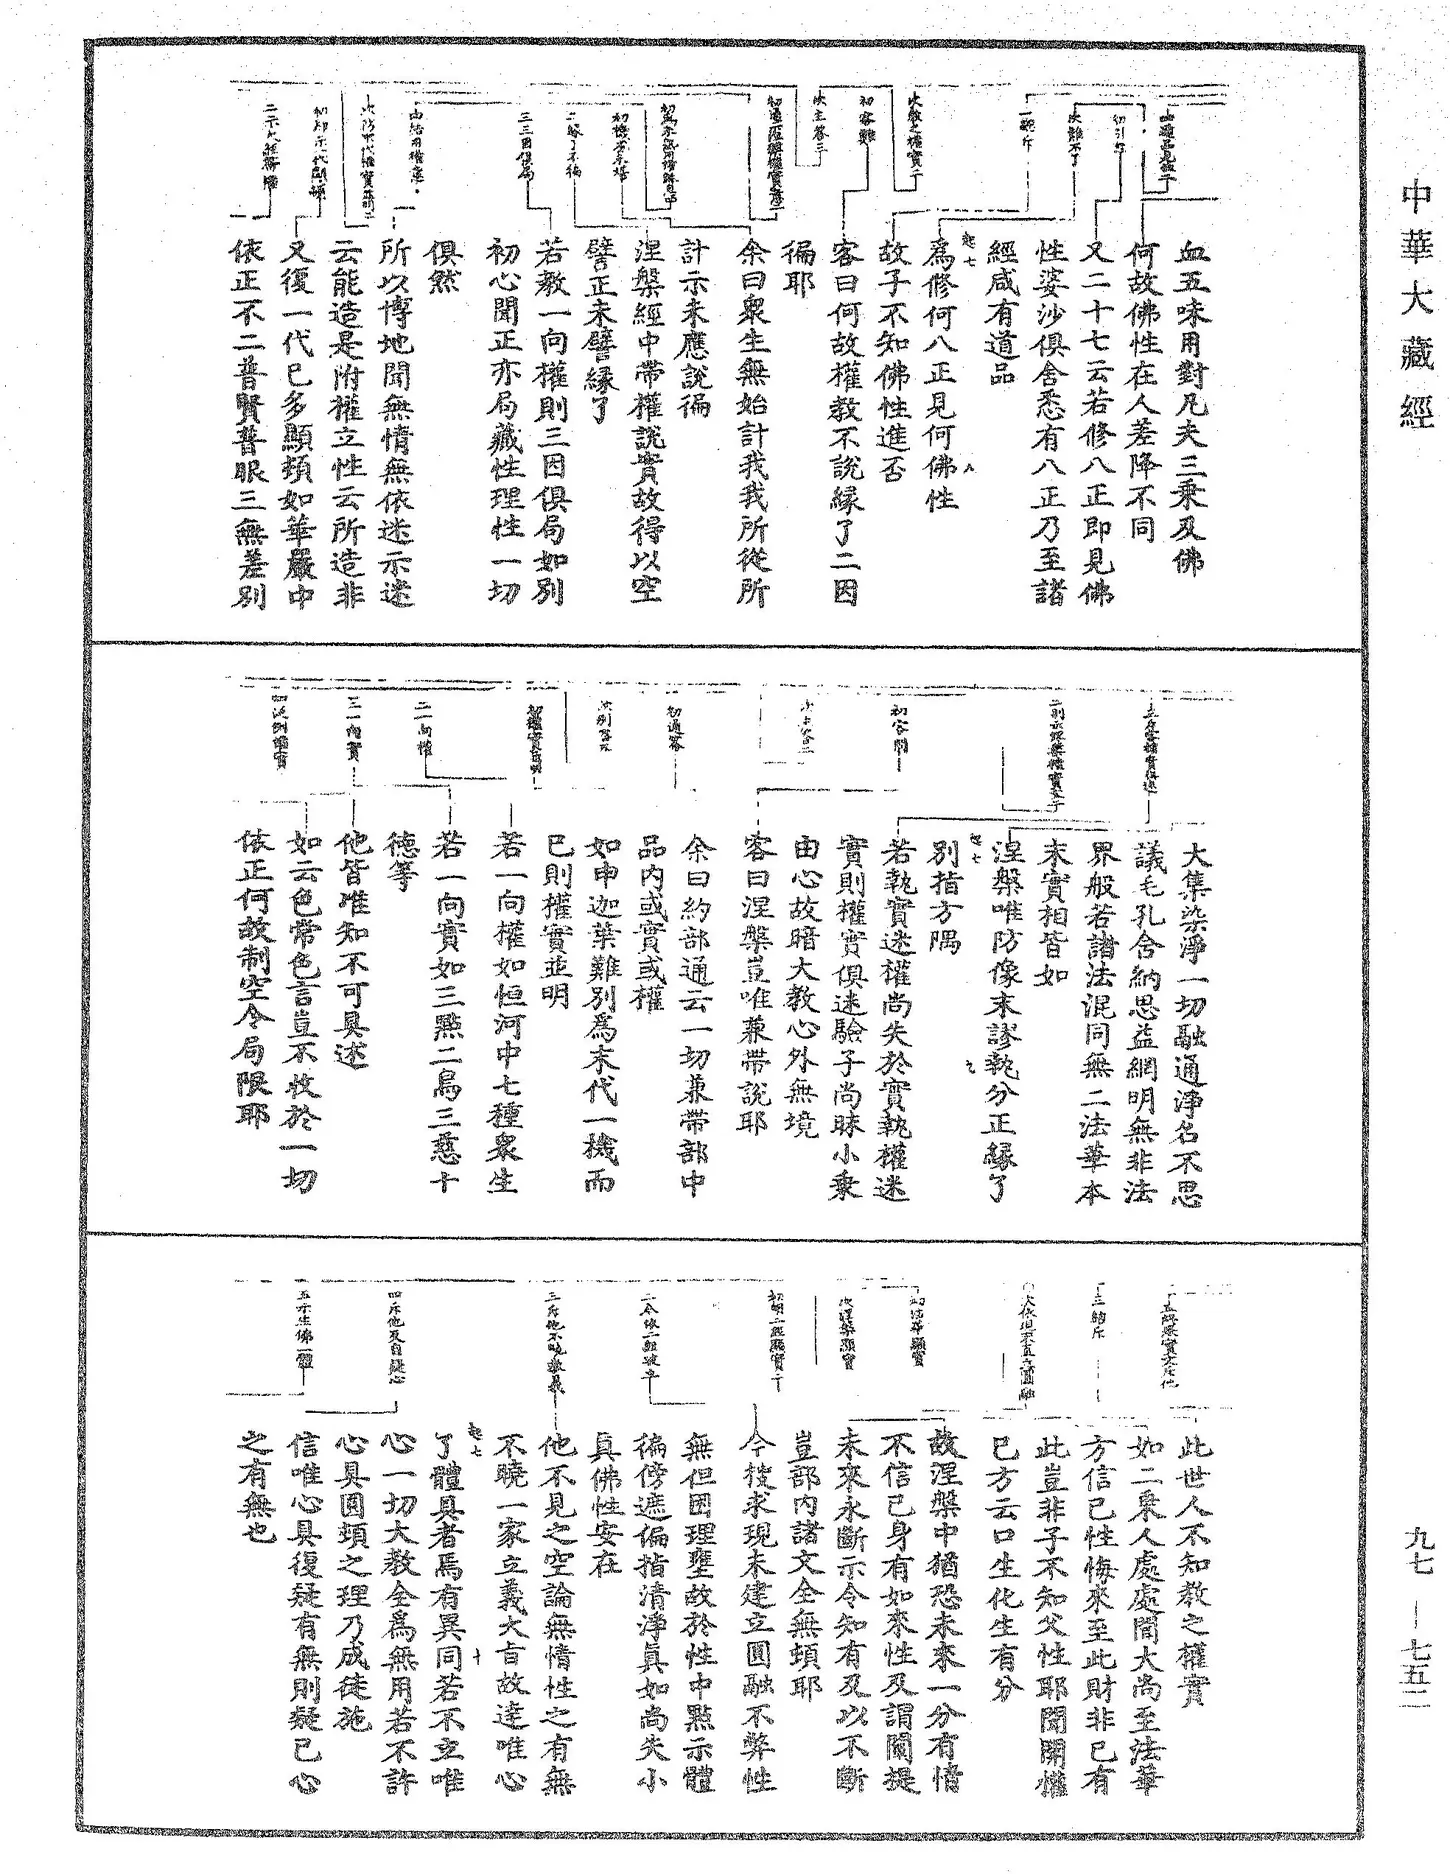 中華大藏經
血五味用對凡夫三乘及佛
何故佛性在人差降不同
又二十七云若修八正即見佛
性婆沙俱舍悉有八正乃至諸
經咸有道品
爲修何八正見何佛性
故子不知佛性進否
客曰何故權教不說緣了二因
徧耶
余曰衆生無始計我我所從所
計示未應說徧
涅槃經中帶權說實故得以空
譬正未譬緣了
若教一向權則三因俱局如別
初心聞正亦局藏性理性一切
俱然
所以博地聞無情無依迷示迷
云能造是附權立性云所造非
又復一代已多顯頓如華嚴中
依正不二普賢普眼三無差別
次教之權實二
初客難
次主答三
三三因俱局
大集染淨一切融通淨名不思
議毛孔含納思益網明無非法
界般若諸法混同無二法華本
末實相皆如
涅槃唯防像末謬執分正緣了
別指方隅
若執實迷權尚失於實執權迷
實則權實俱迷驗子尚昧小乘
由心故暗大教心外無境
客曰涅槃豈唯兼帶說耶
余曰約部通云一切兼帶部中
品內或實或權
如申迦葉難別爲末代一機而
已則權實並明
若一向權如恒河中七種衆生
若一向實如三點二鳥三慈十
德等
他皆唯知不可具述
如云色常色言豈不收於一切
依正何故制空令局限耶
初客問
初通答
二一向權
三一向實
此世人不知教之權實
如二乘人處處聞大尚至法華
方信已性悔來至此財非已有
此豈非子不知父性耶聞開權
已方云口生化生有分
故涅槃中猶恐未來一分有情
不信已身有如來性及謂闡提
未來永斷示令知有及以不斷
豈部內諸文全無頓耶
今搜求現未建立圓融不弊性
無但困理壅故於性中點示體
徧傍遮偏指清淨眞如尚失小
眞佛性安在
他不見之空論無情性之有無
不曉一家立義大旨故達唯心
了體具者焉有異同若不立唯
心一切大教全爲無用若不許
心具圓頓之理乃成徒施
信唯心具復疑有無則疑已心
之有無也
三結斥
次涅槃顯實
四斥他及自疑心
五示生佛一體
九七—七五二